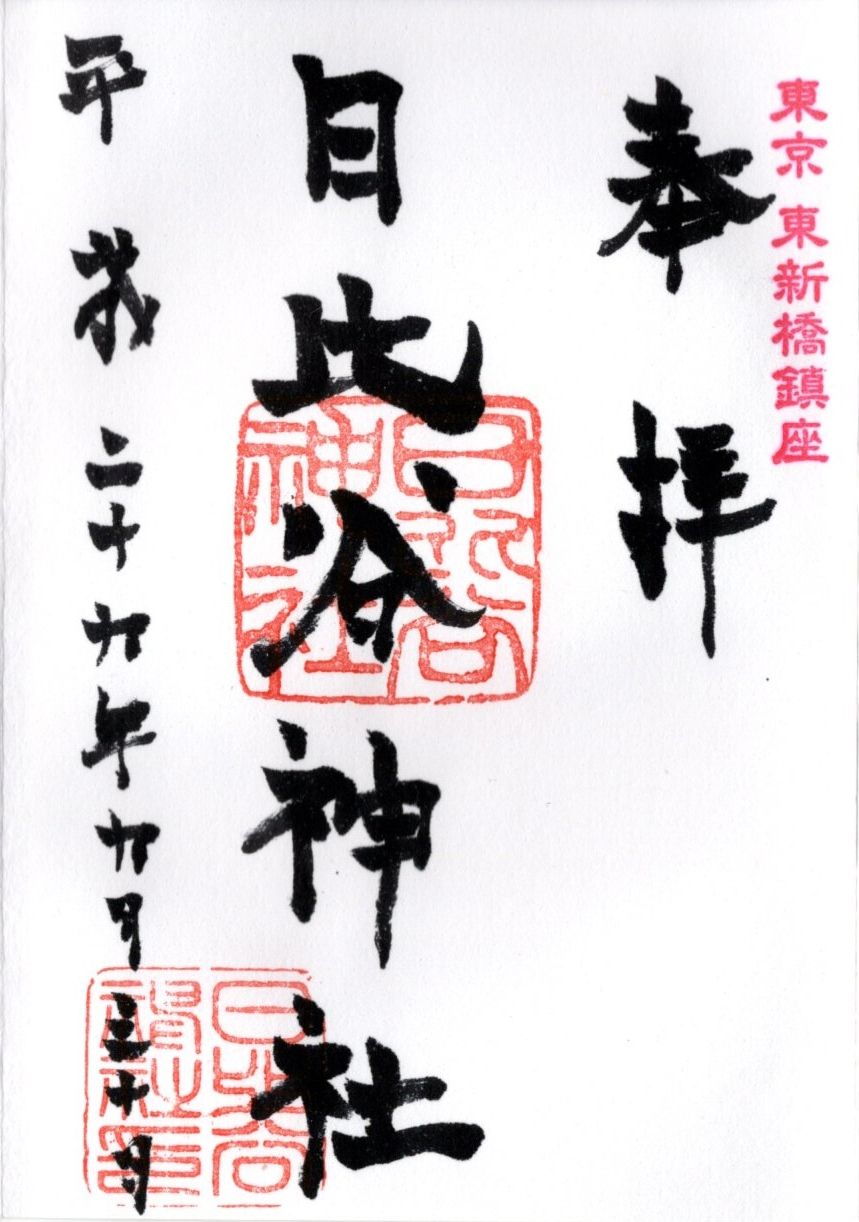 東京 東新橋鎮座
奉拝
日比谷神社
日比谷
神社
平成二十九年九月三十日
日比谷
神社印